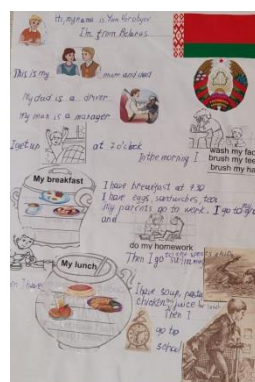 Hi, my name is
I'm from Belarus
This is my mum and dad
My dad is a driver
My mum is a manager
I get up at 7 o'clock
In the morning I
wash my face
brush my teeth
brush my ha
My breakfast
I have breakfast at 7.30
I have eggs, sandwiches, tea
My parents go to work. I go to
and
do my homework
Then I go
My lunch
I have
I have soup, pasta
chicken juice for
Then I
go to
school